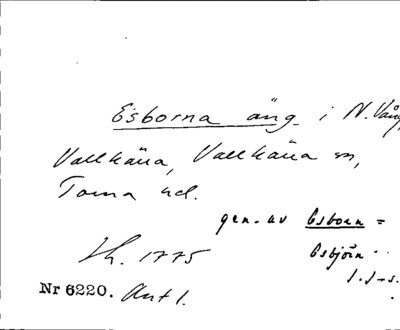 Esborna äng i N. Vång
Vallkärra, Vallkärra sn,
Torna hd.
gen. av Esborn =
Esbjörn..
Sk. 1775
Nr 6220. Ant 1.